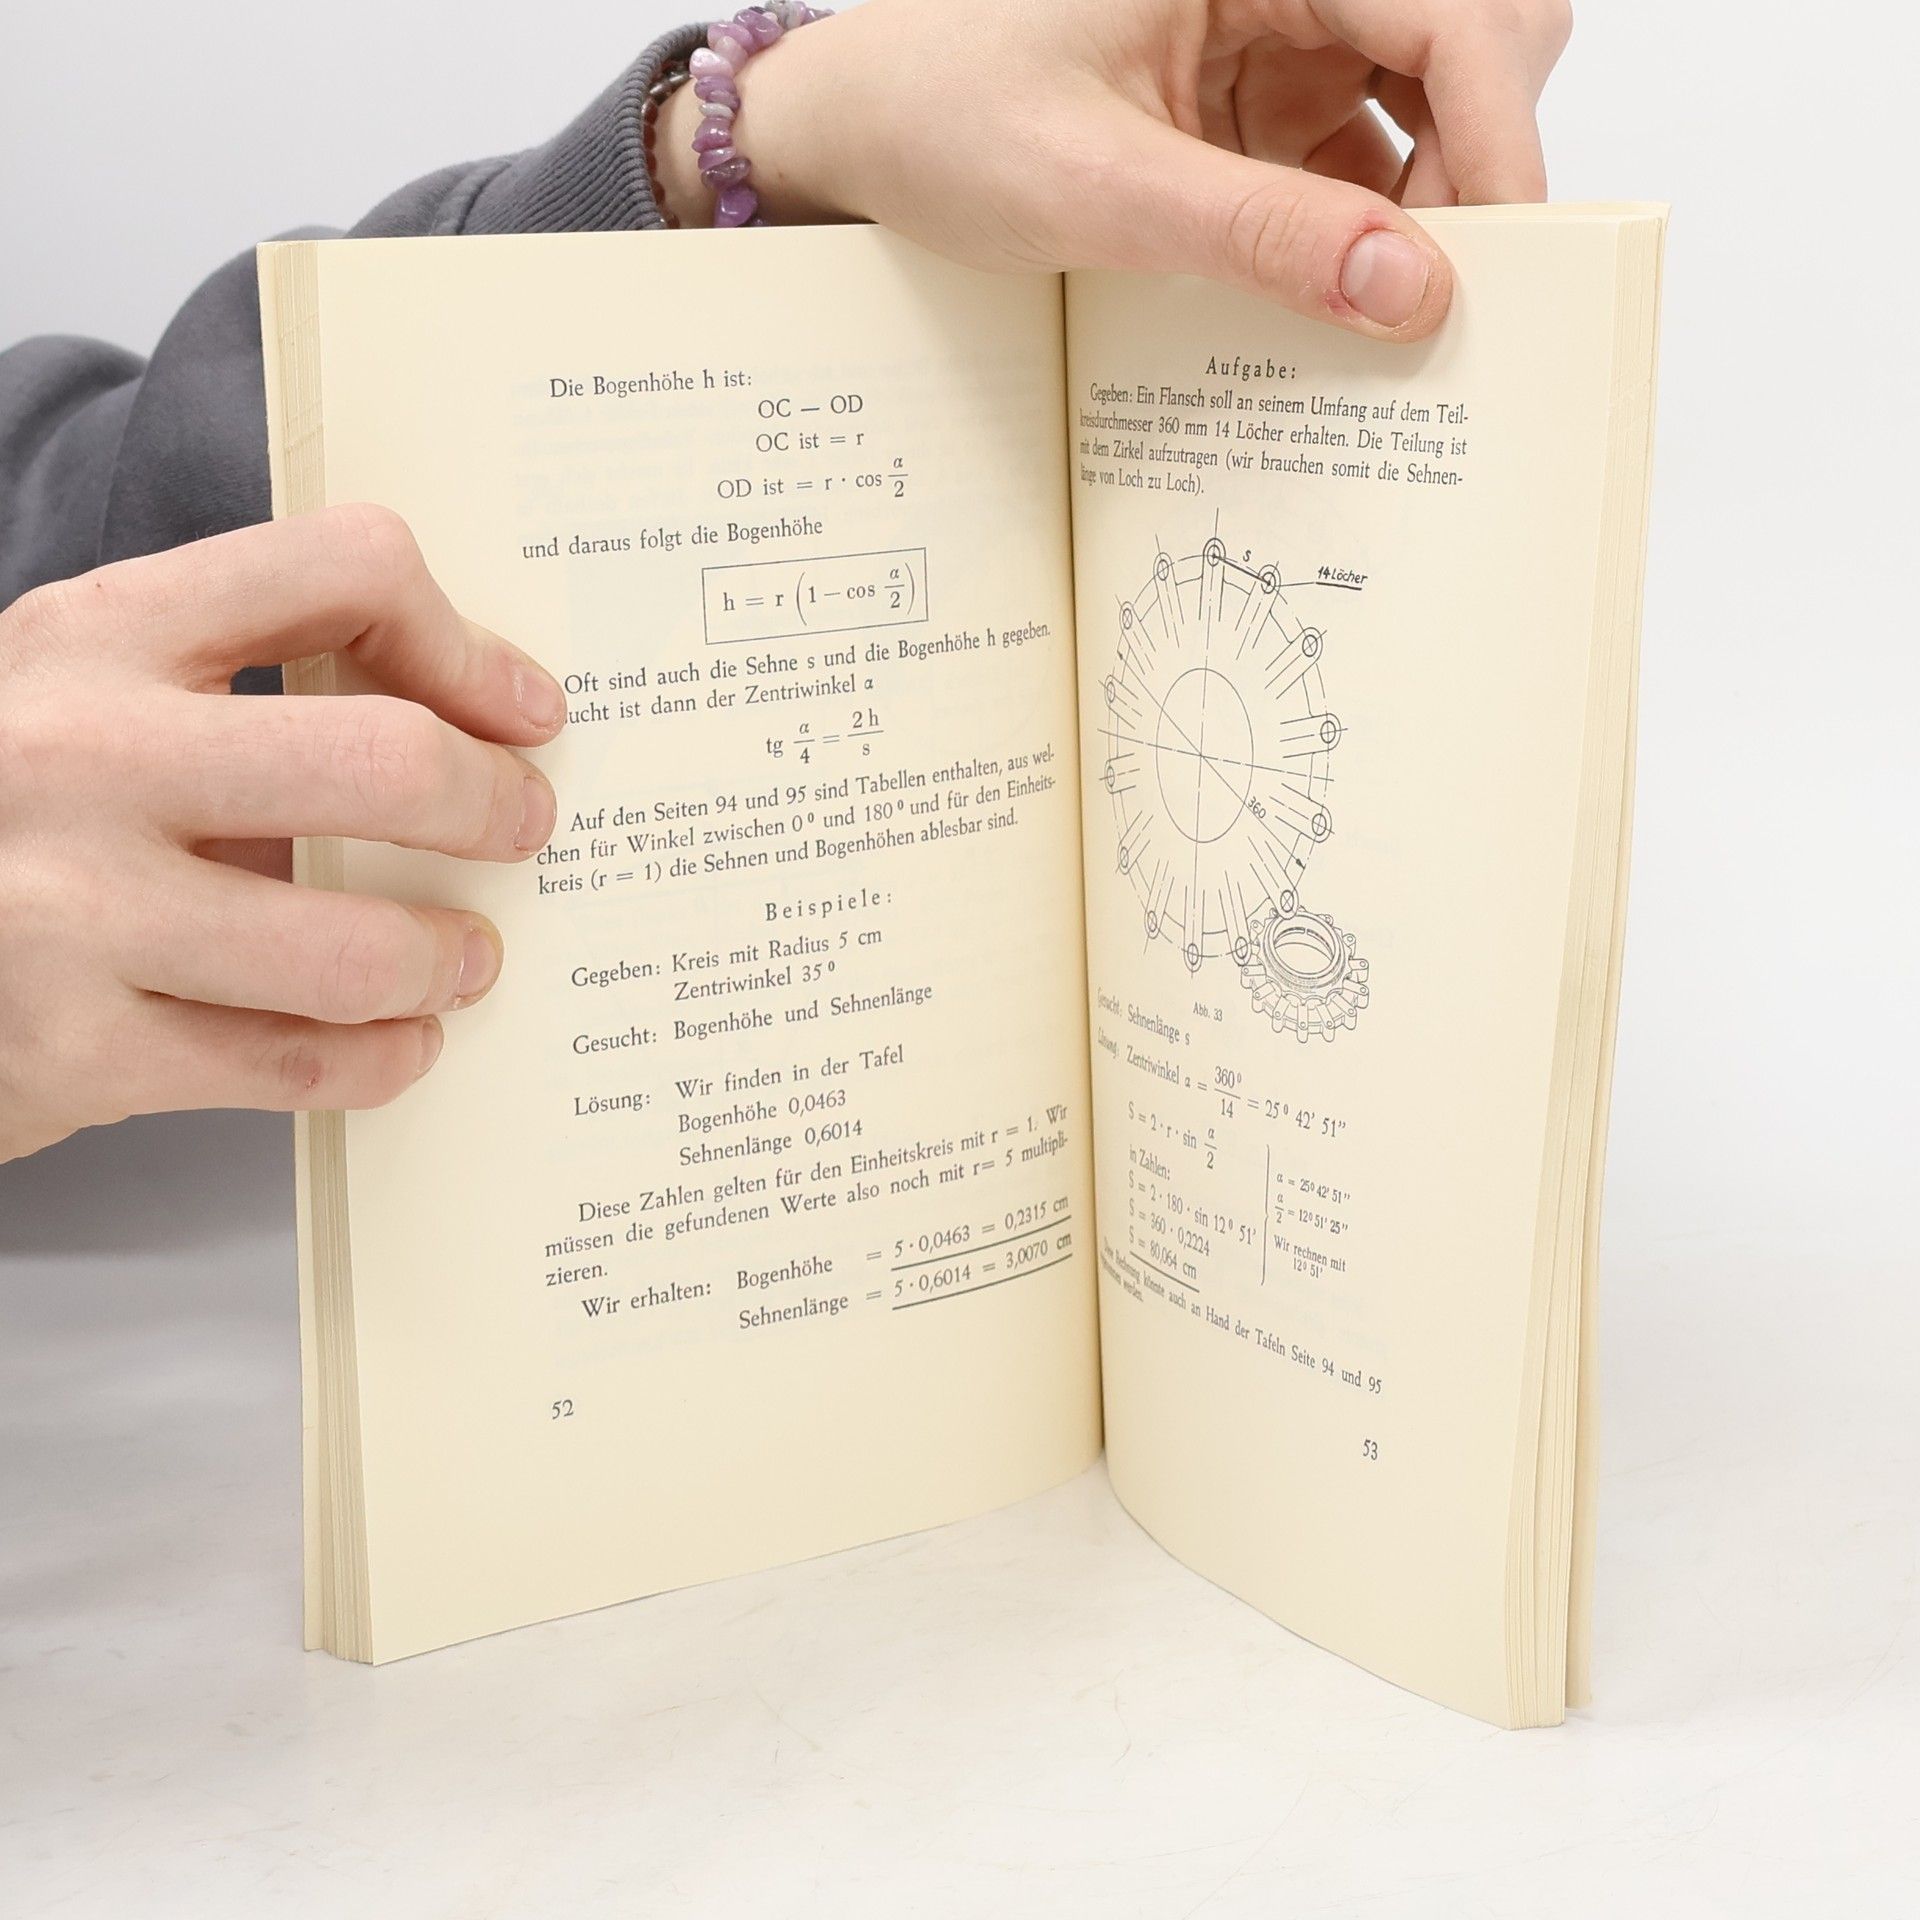 Die Bogenhöhe h ist:
OC — OD
OC ist = r
OD ist = r · cos α/2
und daraus folgt die Bogenhöhe
h = r (1 — cos α/2)
Oft sind auch die Sehne s und die Bogenhöhe h gegeben.
ucht ist dann der Zentriwinkel α
tg α/4 = 2 h/s
Auf den Seiten 94 und 95 sind Tabellen enthalten, aus wel-
chen für Winkel zwischen 0⁰ und 180⁰ und für den Einheits-
kreis (r = 1) die Sehnen und Bogenhöhen ablesbar sind.
Beispiele:
Gegeben: Kreis mit Radius 5 cm
Zentriwinkel 35⁰
Gesucht: Bogenhöhe und Sehnenlänge
Lösung: Wir finden in der Tafel
Bogenhöhe 0,0463
Sehnenlänge 0,6014
Diese Zahlen gelten für den Einheitskreis mit r = 1. Wir
müssen die gefundenen Werte also noch mit r= 5 multipli-
zieren.
Wir erhalten: Bogenhöhe = 5 · 0,0463 = 0,2315 cm
Sehnenlänge = 5 · 0,6014 = 3,0070 cm
52
Aufgabe:
Gegeben: Ein Flansch soll an seinem Umfang auf dem Teil-
kreisdurchmesser 360 mm 14 Löcher erhalten. Die Teilung ist
mit dem Zirkel aufzutragen (wir brauchen somit die Sehnen-
länge von Loch zu Loch).
s
14 Löcher
360
Abb. 33
Gesucht: Sehnenlänge s
Lösung: Zentriwinkel α = 360⁰/14 = 25⁰ 42′ 51″
S = 2 · r · sin α/2
in Zahlen:
S = 2 · 180 · sin 12⁰ 51′
S = 360 · 0,2224
S = 80,064 cm
α = 25⁰ 42′ 51″
α/2 = 12⁰ 51′ 25″
Wir rechnen mit
12⁰ 51′
Diese Rechnung könnte auch an Hand der Tafeln Seite 94 und 95
werden.
53